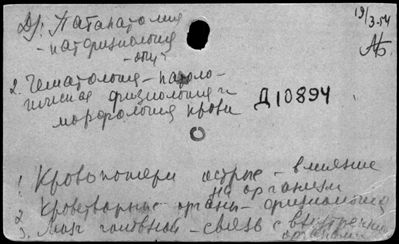 Др. Патанатомия
19/3-54
- патфизиология
- опыт
АБ.
2. Гематология - патоло-
гическая физиология и
морфология крови
Д10894
1. Кровопотери острые - влияние
на организм
2. Кроветворные органы - физиология
3. Мозг головной - связь с внутренними
органами